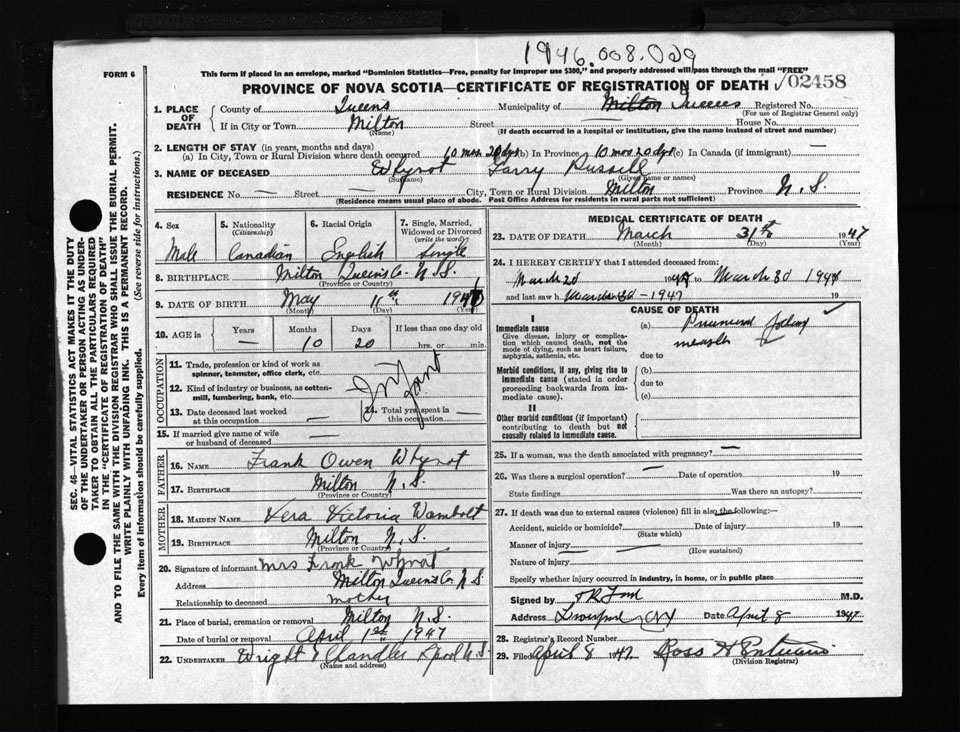 1946.008.029
FORM 6
This form if placed in an envelope, marked "Dominion Statistics—Free, penalty for improper use $300," and properly addressed will pass through the mail "FREE"
PROVINCE OF NOVA SCOTIA—CERTIFICATE OF REGISTRATION OF DEATH 02458
1. PLACE OF DEATH
County of Queens Municipality of Milton Queens Registered No.
(For use of Registrar General only)
If in City or Town Milton Street — House No.
(Name) (If death occurred in a hospital or institution, give the name instead of street and number)
2. LENGTH OF STAY (in years, months and days)
(a) In City, Town or Rural Division where death occurred 10 mos 20 dys (b) In Province 10 mos 20 dys (c) In Canada (if immigrant) —
3. NAME OF DECEASED Whynot Garry Russell
(Surname) (Given name or names)
RESIDENCE No. — Street — City, Town or Rural Division Milton Province N.S.
(Residence means usual place of abode. Post Office Address for residents in rural parts not sufficient)
4. Sex
Male
5. Nationality
(Citizenship)
Canadian
6. Racial Origin
English
7. Single, Married, Widowed or Divorced
(write the word)
Single
8. BIRTHPLACE Milton Queens Co. N.S.
(Province or Country)
9. DATE OF BIRTH May 11th 1946
(Month) (Day) (Year)
10. AGE in
Years Months Days If less than one day old
— 10 20 hrs. or min.
OCCUPATION
11. Trade, profession or kind of work as spinner, teamster, office clerk, etc.
12. Kind of industry or business, as cotton-mill, lumbering, bank, etc.
Infant
13. Date deceased last worked at this occupation —
14. Total yrs. spent in this occupation
15. If married give name of wife or husband of deceased —
FATHER
16. NAME Frank Owen Whynot
17. BIRTHPLACE Milton N.S.
(Province or Country)
MOTHER
18. MAIDEN NAME Vera Victoria Wambolt
19. BIRTHPLACE Milton N.S.
(Province or Country)
20. Signature of informant Mrs Frank Whynot
Address Milton Queens Co. N.S.
Relationship to deceased mother
21. Place of burial, cremation or removal Milton N.S.
Date of burial or removal April 1st 1947
22. UNDERTAKER Wright & Chandler Lpool N.S.
(Name and address)
MEDICAL CERTIFICATE OF DEATH
23. DATE OF DEATH March 31st 1947
(Month) (Day) (Year)
24. I HEREBY CERTIFY that I attended deceased from:
March 20 1947 to March 30 1947
and last saw h. March 30 - 1947 19
CAUSE OF DEATH
I
Immediate cause
Give disease, injury or complication which caused death, not the mode of dying, such as heart failure, asphyxia, asthenia, etc.
(a) following
measles
due to
Morbid conditions, if any, giving rise to immediate cause (stated in order proceeding backwards from immediate cause).
(b)
due to
(c)
II
Other morbid conditions (if important) contributing to death but not causally related to immediate cause.
25. If a woman, was the death associated with pregnancy? —
26. Was there a surgical operation? — Date of operation 19
State findings Was there an autopsy?
27. If death was due to external causes (violence) fill in also the following:—
Accident, suicide or homicide? Date of injury 19
(State which)
Manner of injury
(How sustained)
Nature of injury
Specify whether injury occurred in industry, in home, or in public place
Signed by M.D.
Address Liverpool NS Date April 8 1947
28. Registrar's Record Number
29. Filed April 8 1947 Ross H
(Division Registrar)
SEC. 46—VITAL STATISTICS ACT MAKES IT THE DUTY
OF THE UNDERTAKER OR PERSON ACTING AS UNDERTAKER TO OBTAIN ALL THE PARTICULARS REQUIRED
IN THE "CERTIFICATE OF REGISTRATION OF DEATH"
AND TO FILE THE SAME WITH THE DIVISION REGISTRAR WHO SHALL ISSUE THE BURIAL PERMIT.
WRITE PLAINLY WITH UNFADING INK. THIS IS A PERMANENT RECORD.
Every item of information should be carefully supplied. (See reverse side for instructions.)